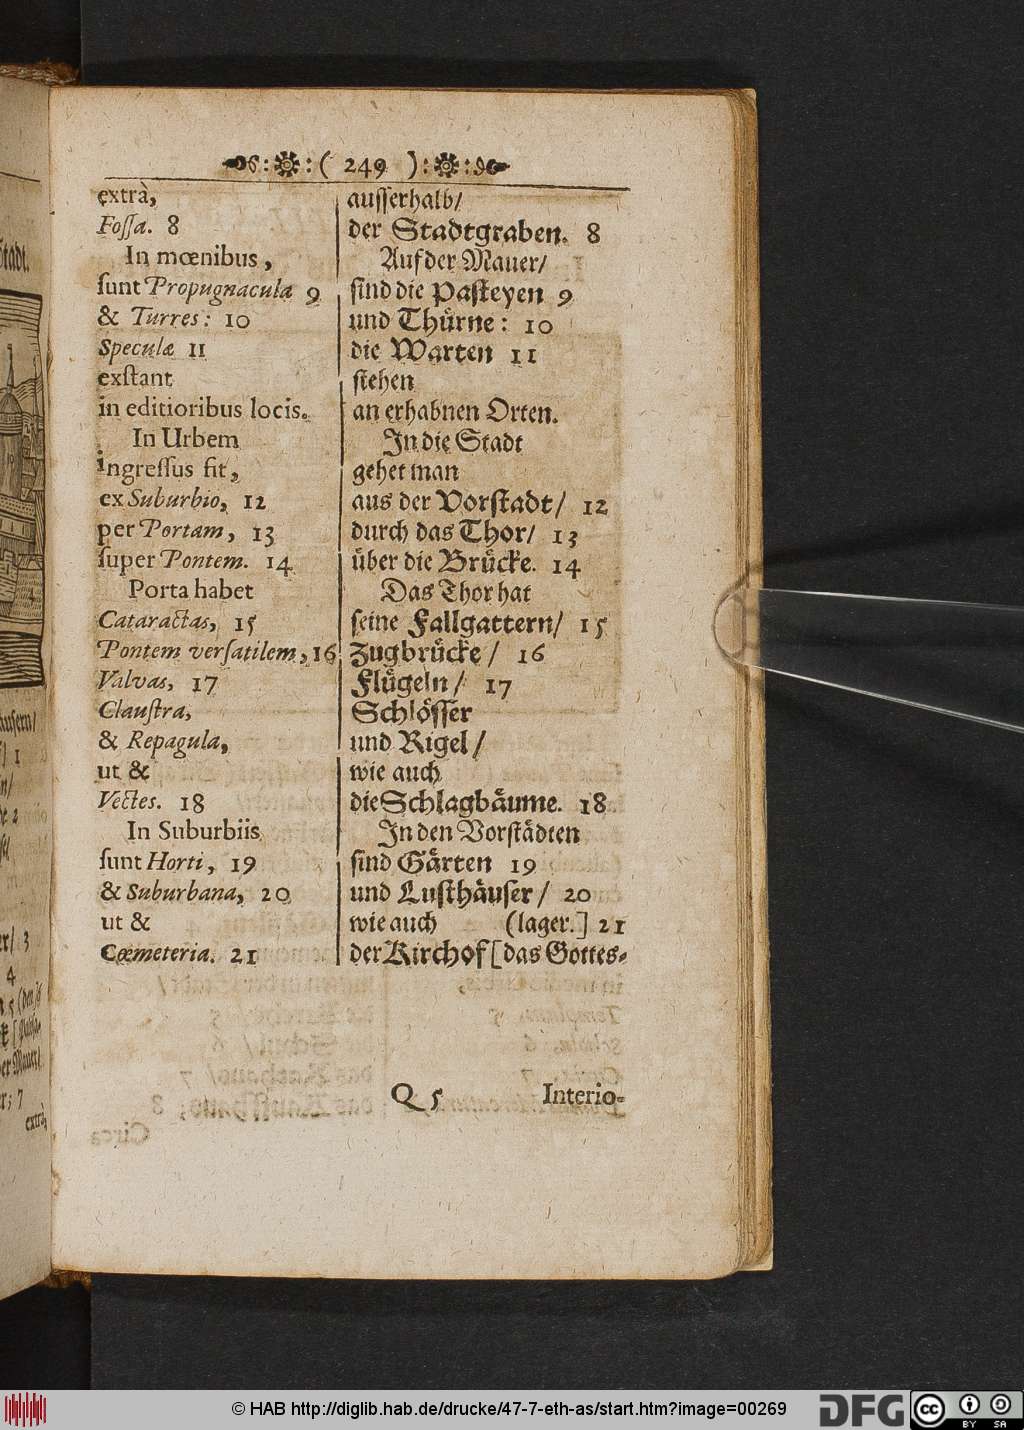 :( 249 ):
extrà,
Fossa. 8
In mœnibus,
ſunt Propugnacula 9
& Turres: 10
Speculæ 11
exſtant
in editioribus locis.
In Urbem
ingreſſus fit,
ex Suburbio, 12
per Portam, 13
ſuper Pontem. 14
Porta habet
Cataractas, 15
Pontem verſatilem, 16
Valvas, 17
Clauſtra,
& Repagula,
ut &
Vectes. 18
In Suburbiis
ſunt Horti, 19
& Suburbana, 20
ut &
Cœmeteria. 21
auſſerhalb/
der Stadtgraben. 8
Auf der Mauer/
ſind die Paſteyen 9
und Thürne: 10
die Warten 11
ſtehen
an erhabnen Orten.
In die Stadt
gehet man
aus der Vorſtadt/ 12
durch das Thor/ 13
über die Brücke. 14
Das Thor hat
ſeine Fallgattern/ 15
Zugbrücke/ 16
Flügeln/ 17
Schlöſſer
und Rigel/
wie auch
die Schlagbäume. 18
In den Vorſtädten
ſind Gärten 19
und Luſthäuſer/ 20
wie auch (lager.] 21
der Kirchof [das Gottes-
Q 5 Interio-
© HAB http://diglib.hab.de/drucke/47-7-eth-as/start.htm?image=00269
DFG
cc BY SA